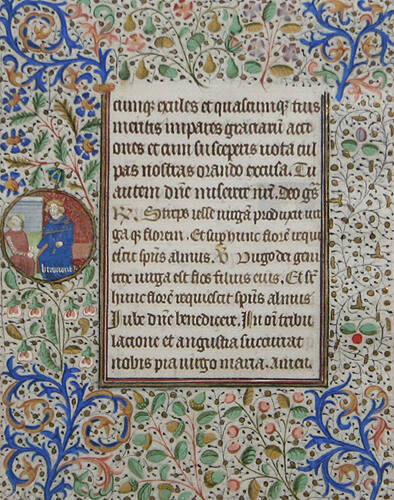 cumq exiles et quascumq tuis
meritis impares graciarū acci
ones et cum susceperis uota cul
pas nostras orando excusa. Tu
autem dn̄e miserere nr̄i. Deo gr̄s
R. Stirps iesse uirgam produxit uir
ga q florem. Et sup hunc florē requi
escit spūs almus. V. Virgo dei geni
trix uirga est flos filius eius. Et sup
hunc florē requiescit spūs almus
Iube dn̄e benedicere. In om̄i tribu
lacione et angustia succurrat
nobis pia uirgo maria. Amen.